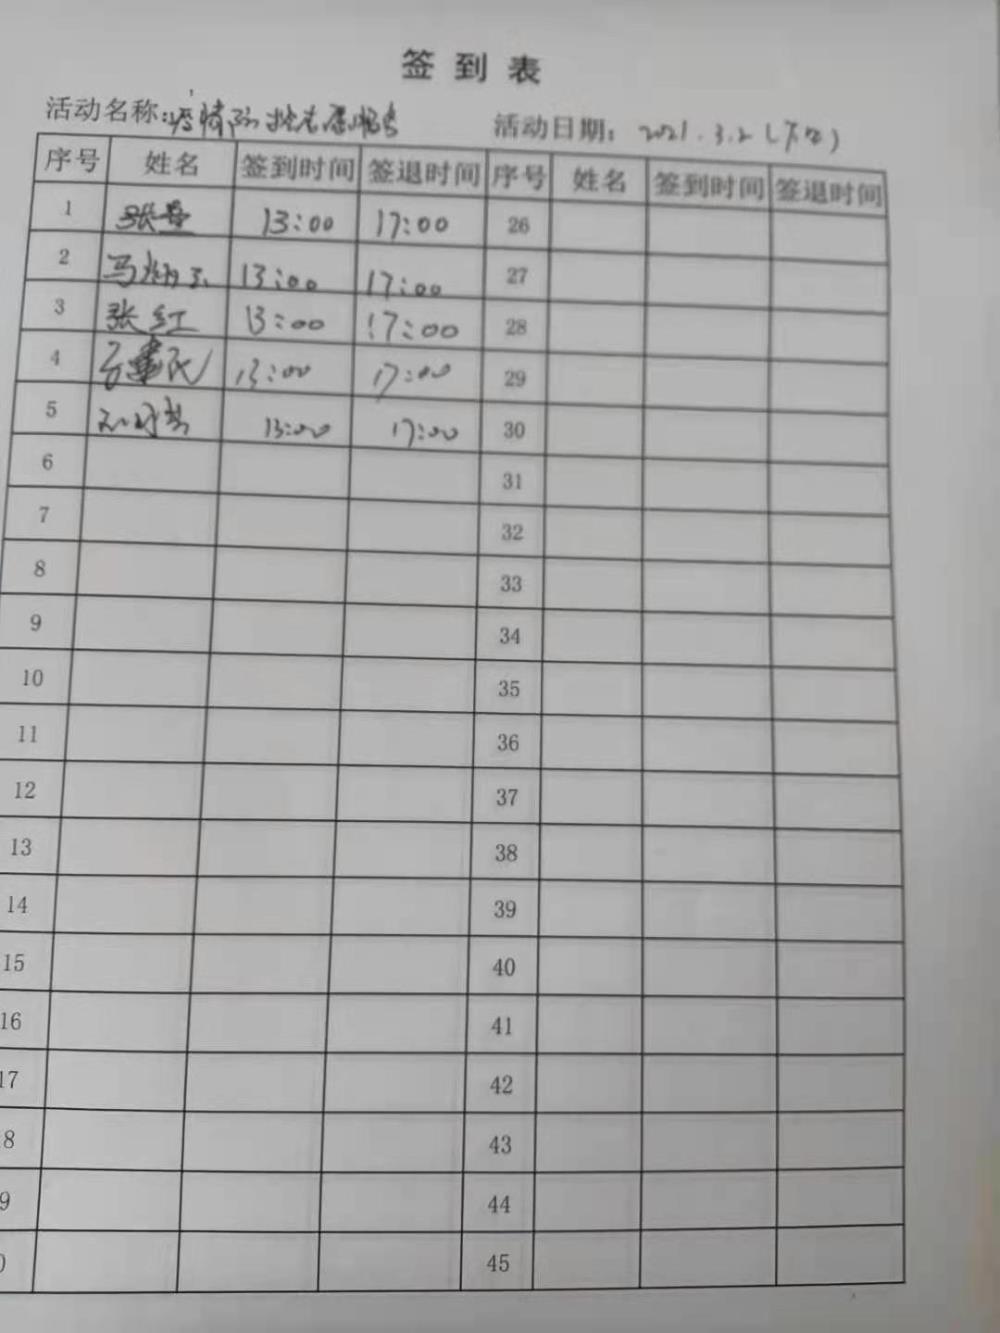 签到表
活动名称:疫情防控志愿服务 活动日期: 2021.3.2(下午)
序号 姓名 签到时间 签退时间 序号 姓名 签到时间 签退时间
1 张 13:00 17:00 26
2 马 13:00 17:00 27
3 张红 13:00 17:00 28
4 建民 13:00 17:00 29
5 13:00 17:00 30
6 31
7 32
8 33
9 34
10 35
11 36
12 37
13 38
14 39
15 40
16 41
17 42
8 43
9 44
0 45